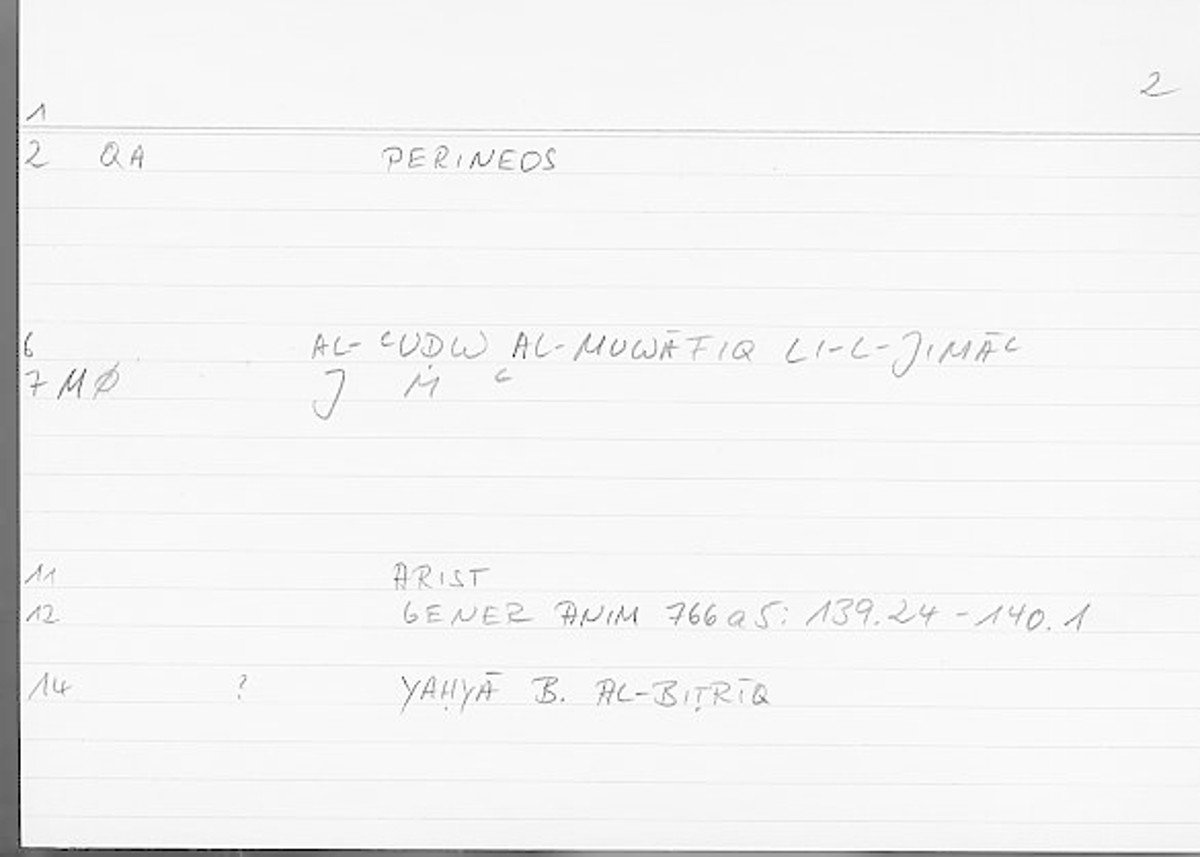 2
1
2 QA PERINEOS
6 AL-ʿUḌW AL-MUWĀFIQ LI-L-JIMĀʿ
7 MØ J M ʿ
11 ARIST
12 GENER ANIM 766a5: 139.24-140.1
14 ? YAḤYĀ B. AL-BIṬRĪQ